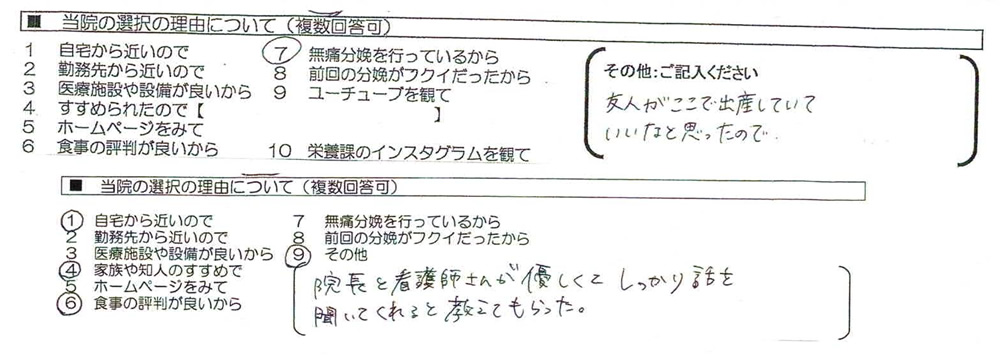 ■ 当院の選択の理由について（複数回答可）
1 自宅から近いので 7 無痛分娩を行っているから
2 勤務先から近いので 8 前回の分娩がフクイだったから
3 医療施設や設備が良いから 9 ユーチューブを観て
4 すすめられたので【 】
5 ホームページをみて
6 食事の評判が良いから 10 栄養課のインスタグラムを観て
その他:ご記入ください
友人がここで出産していて
いいなと思ったので.
■ 当院の選択の理由について（複数回答可）
1 自宅から近いので 7 無痛分娩を行っているから
2 勤務先から近いので 8 前回の分娩がフクイだったから
3 医療施設や設備が良いから 9 その他
4 家族や知人のすすめで
5 ホームページをみて
6 食事の評判が良いから
院長と看護師さんが優しくて しっかり話を
聞いてくれると教えてもらった。